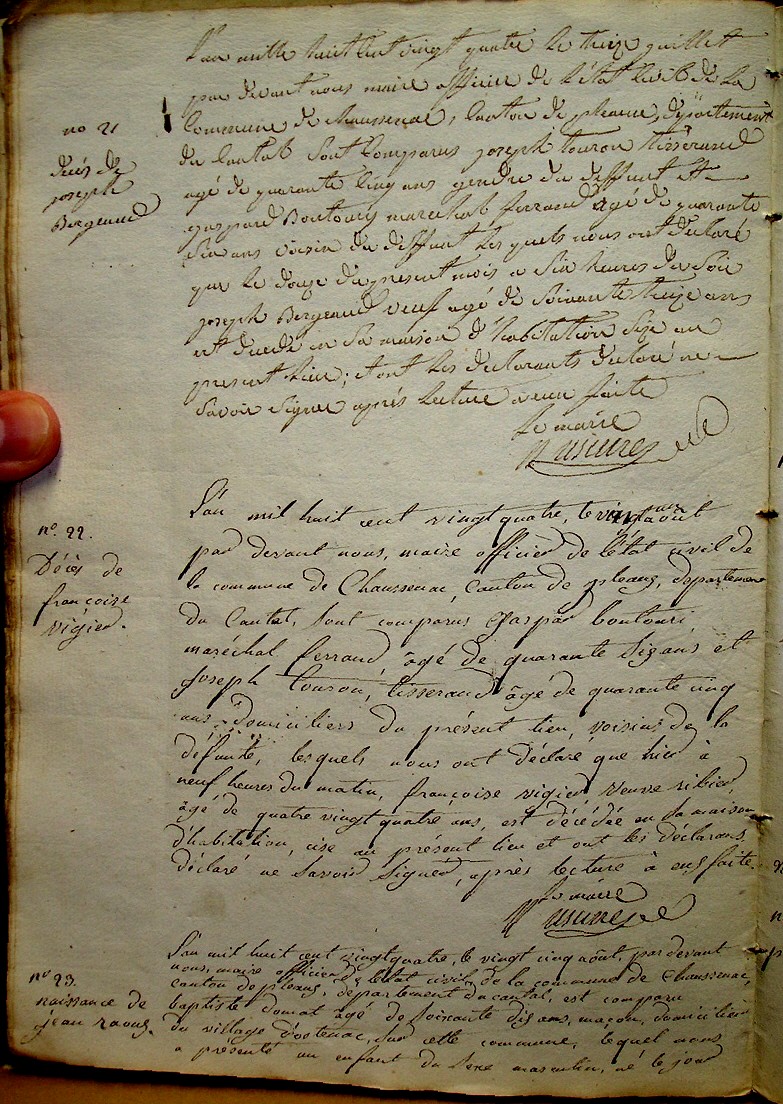 L'an mille huit cent vingt quatre le treize juillet
par devant nous maire officier de l'état civil de la
commune de chaussenac, canton de pleaux, département
du Cantal sont comparus joseph touron tisserand
agé de quarante cinq ans gendre du deffunt et
gaspard Boutoury marechal ferrand agé de quarante
six ans voisin du deffunt les quels nous ont declaré
que le douze du present mois a six heures du soir
joseph Bergeaud veuf agé de soixante treize ans
est decedé en sa maison d'habitation size au
present lieu; et ont les declarants declaré ne
savoir signer après lecture a eux faite
le maire
no 21
decés de
joseph
Bergeaud
L'an mil huit cent vingt quatre, le vingt août
par devant nous, maire officier de l'état civil de
la commune de Chaussenac, canton de pleaux, departement
du Cantal, sont comparus Gaspar boutouri
maréchal ferrand, âgé de quarante six ans et
Joseph Touron, tisserand âgé de quarante cinq
ans, domiciliers du présent lieu, voisins de la
défunte, lesquels nous ont déclaré que hier à
neuf heures du matin, françoise vigier veuve ribier,
âgé de quatre vingt quatre ans, est décédée en sa maison
d'habitation, cise au présent lieu et ont les déclarans
déclaré ne savoir signer, après lecture à eux faite.
le maire
no. 22.
Décès de
françoise
vigier.
L'an mil huit cent vingt quatre, le vingt cinq août, par devant
nous, maire officier de l'état civil de la commune de Chaussenac,
canton de pleaux, département du cantal, est comparu
baptiste domat âgé de soixante dix ans, maçon, domicilier
du village d'ostenac, sur cette commune, lequel nous
a présenté un enfant du sexe masculin, né le jour
no 23.
naissance de
jean raoux.